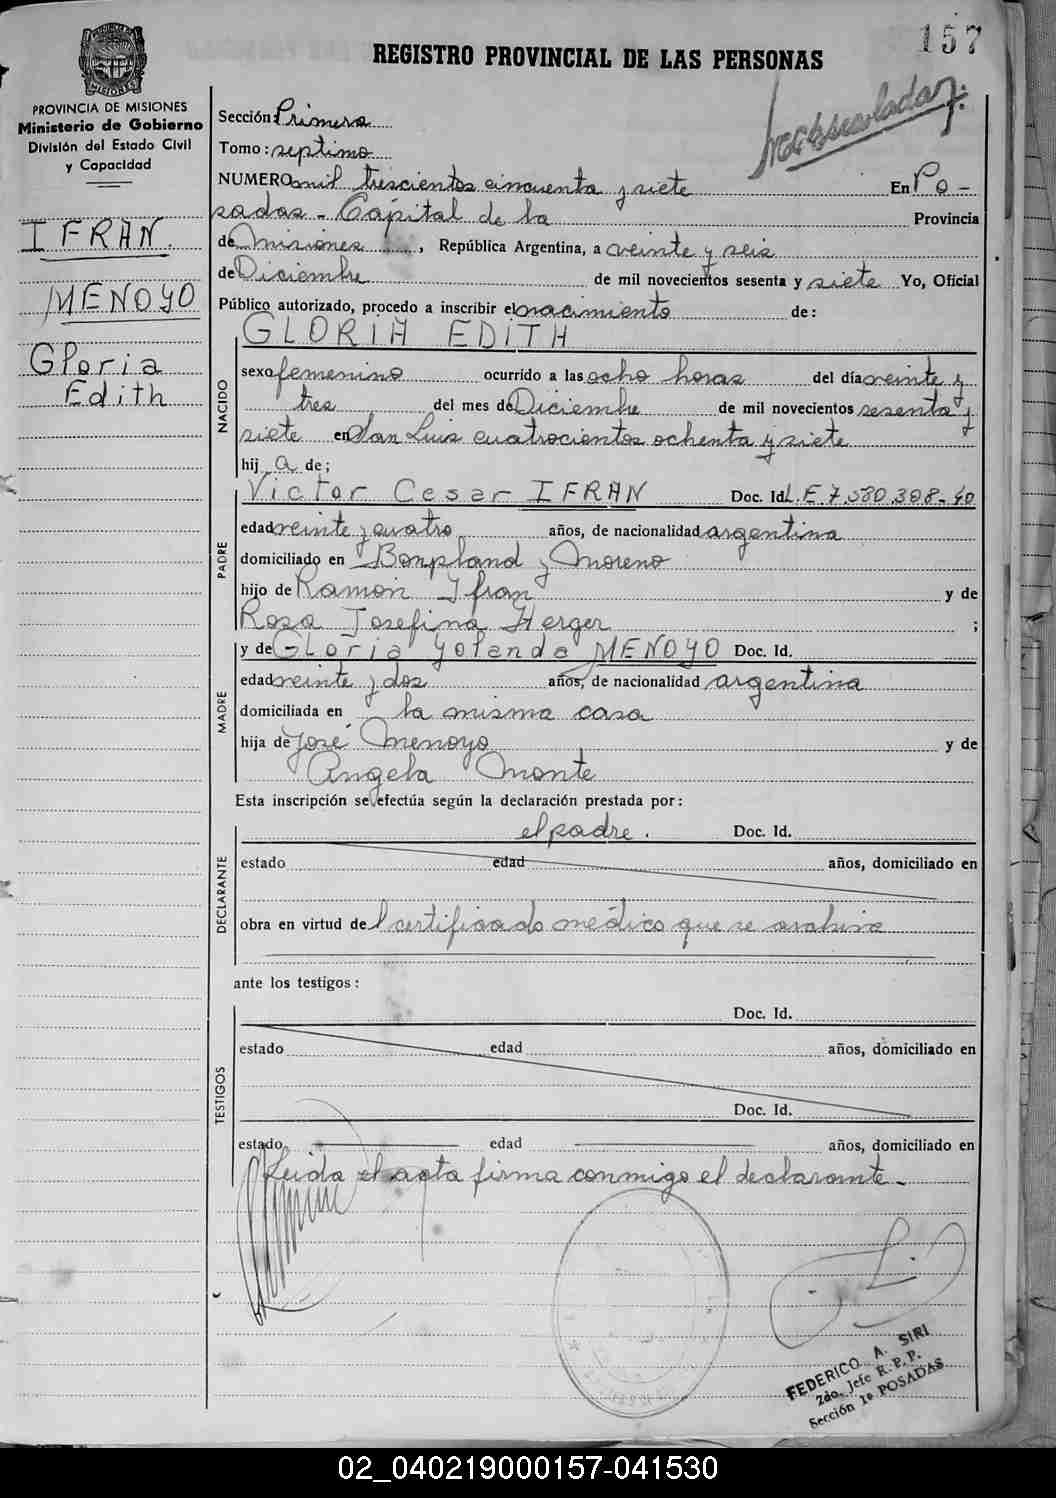 157
REGISTRO PROVINCIAL DE LAS PERSONAS
PROVINCIA DE MISIONES
Ministerio de Gobierno
División del Estado Civil
y Capacidad
IFRAN.
MENOYO
Gloria
Edith
Sección Primera
Tomo: septimo
NUMERO mil trescientos cincuenta y siete En Po-
sadas - Capital de la Provincia
de Misiones, República Argentina, a veinte y seis
de Diciembre de mil novecientos sesenta y siete Yo, Oficial
Público autorizado, procedo a inscribir el nacimiento de:
GLORIA EDITH
NACIDO
sexo femenino ocurrido a las ocho horas del día veinte y
tres del mes de Diciembre de mil novecientos sesenta y
siete en San Luis cuatrocientos ochenta y siete
hij a de;
PADRE
Victor Cesar IFRAN Doc. Id. L.E. 7.580.398-40
edad veinte y cuatro años, de nacionalidad argentina
domiciliado en Bonpland y Moreno
hijo de Ramón Ifran y de
Rosa Josefina Herger ;
MADRE
y de Gloria Yolanda MENOYO Doc. Id.
edad veinte y dos años, de nacionalidad argentina
domiciliada en la misma casa
hija de José Menoyo y de
Angela Monte
Esta inscripción se efectúa según la declaración prestada por:
DECLARANTE
el padre. Doc. Id.
estado edad años, domiciliado en
obra en virtud del certificado médico que se archiva
ante los testigos:
TESTIGOS
Doc. Id.
estado edad años, domiciliado en
Doc. Id.
estado edad años, domiciliado en
Leida el acta firma conmigo el declarante.-
FEDERICO A. SIRI
2do. Jefe R.P.P.
Sección 1º POSADAS
02_040219000157-041530